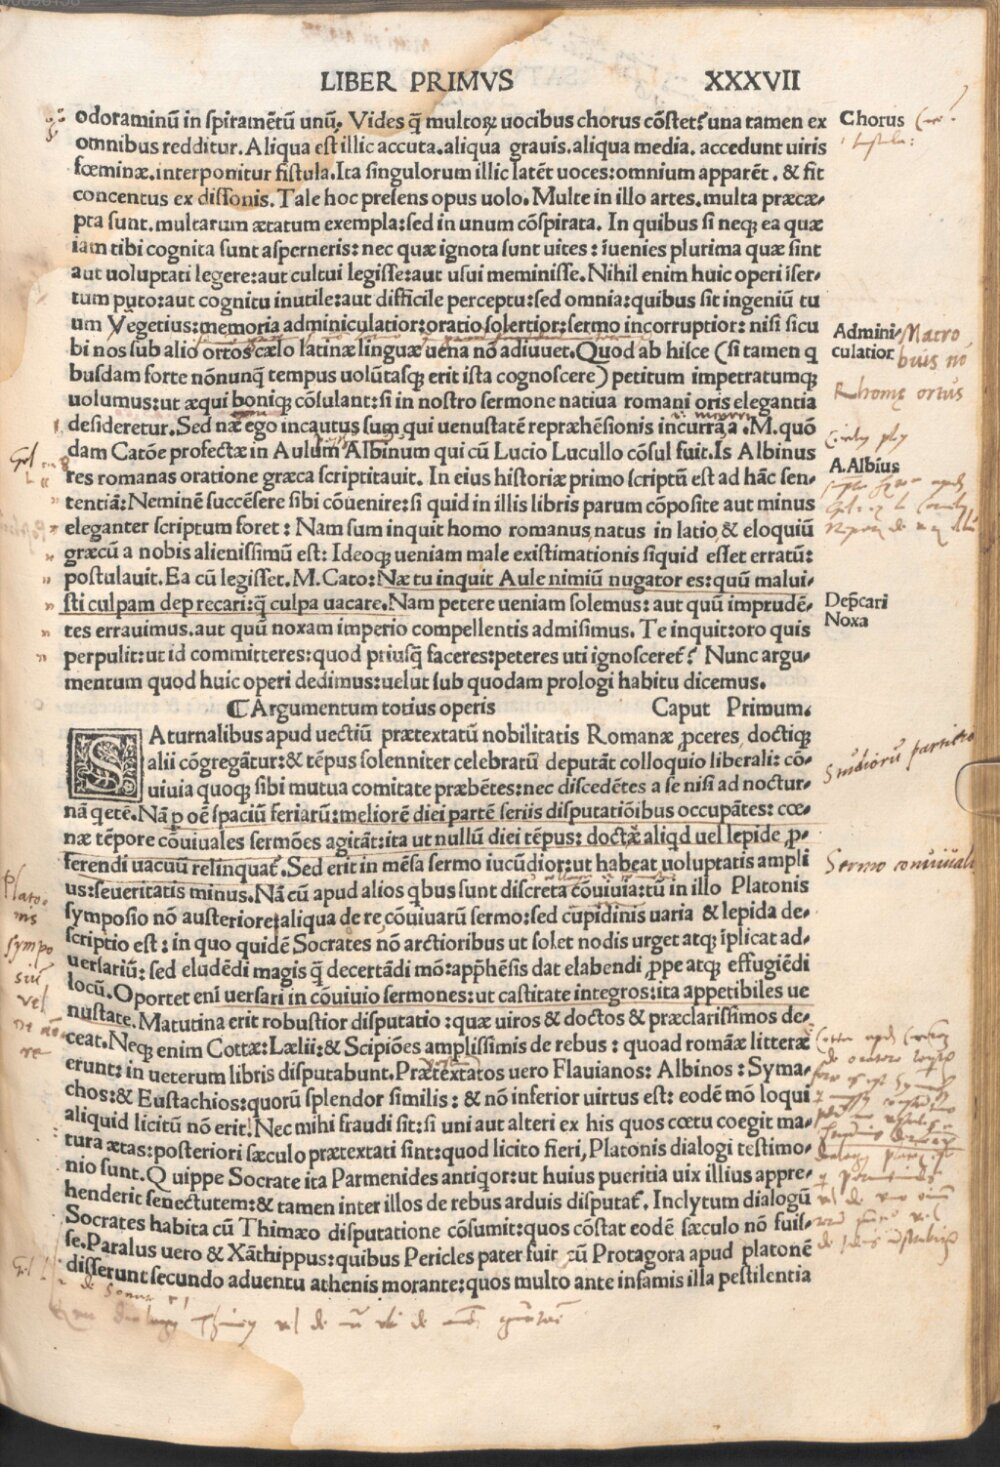 LIBER PRIMVS XXXVII
odoraminū in spiramētū unū. Vides q̄ multoꝝ uocibus chorus cōstet? una tamen ex
omnibus redditur. Aliqua est illic accuta.aliqua grauis.aliqua media. accedunt uiris
fœminæ.interponitur fistula.Ita singulorum illic latēt uoces:omnium apparēt. & fit
concentus ex dissonis. Tale hoc præsens opus uolo. Multe in illo artes.multa præcæ-
pta sunt.multarum ætatum exempla:sed in unum cōspirata. In quibus si neqꝫ ea quæ
iam tibi cognita sunt asperneris: nec quæ ignota sunt uites: īuenies plurima quæ sint
aut uoluptati legere:aut cultui legisse:aut usui meminisse. Nihil enim huic operi iser-
tum puto:aut cognitu inutile:aut difficile perceptu:sed omnia:quibus sit ingeniū tu
um Vegetius:memoria adminiculatior:oratio solertior:sermo incorruptior: nisi sicu
bi nos sub alio ortos cælo latinæ linguæ uena nō adiuuet.Quod ab hisce (si tamen q
busdam forte nōnunq̄ tempus uolūtasqꝫ erit ista cognoscere) petitum impetratumqꝫ
uolumus:ut æqui boniqꝫ cōsulant:si in nostro sermone natiua romani oris elegantia
desideretur. Sed næ ego incautus sum qui uenustatē repræhēsionis incurrā a .M.quō
dam Catōe profectæ in Aulum Albinum qui cū Lucio Lucullo cōsul fuit.Is Albinus
res romanas oratione græca scriptitauit. In eius historiæ primo scriptū est ad hāc sen-
tentiā: Neminē succēsere sibi cōuenire:si quid in illis libris parum cōposite aut minus
eleganter scriptum foret : Nam sum inquit homo romanus natus in latio & eloquiū
græcū a nobis alienissimū est: Ideoqꝫ ueniam male existimationis siquid esset erratū:
postulauit. Ea cū legisset. M. Cato: Næ tu inquit Aule nimiū nugator es:quū malui-
sti culpam deprecari:q̄ culpa uacare. Nam petere ueniam solemus: aut quū imprudē-
tes errauimus.aut quū noxam imperio compellentis admisimus. Te inquit:oro quis
perpulit:ut id committeres:quod priusq̄ faceres:peteres uti ignosceret? Nunc argu-
mentum quod huic operi dedimus:uelut sub quodam prologi habitu dicemus.
Chorus
Admini-
culatior
Macro
bius nō
Rhomę ortus
A.Albius
Dep̄cari
Noxa
⸿ Argumentum totius operis Caput Primum.
SAturnalibus apud uectiū prætextatū nobilitatis Romanæ ꝓceres, doctiqꝫ
alii cōgregātur:& tēpus solenniter celebratū deputāt colloquio liberali: cō-
uiuia quoqꝫ sibi mutua comitate præbētes:nec discedētes a se nisi ad noctur-
nā qetē. Nā p oē spaciū feriarū:meliorē diei partē seriis disputatiōibus occupātes: cœ-
næ tēpore cōuiuales sermōes agitāt:ita ut nullū diei tēpus: doctæ aliqd uel lepide ꝓ-
ferendi uacuū relinquat. Sed erit in mēsa sermo iucūdior:ut habeat uoluptatis ampli
us:seueritatis minus. Nā cū apud alios qbus sunt discreta cōuiuia:tū in illo Platonis
symposio nō austeriore aliqua de re cōuiuarū sermo:sed cupidinis uaria & lepida de-
scriptio est : in quo quidē Socrates nō arctioribus ut solet nodis urget atqꝫ īplicat ad-
uersariū: sed eludēdi magis q̄ decertādi mō:app̄hēsis dat elabendi ꝓpe atqꝫ effugiēdi
locū. Oportet enī uersari in cōuiuio sermones:ut castitate integros:ita appetibiles ue
nustate. Matutina erit robustior disputatio : quæ uiros & doctos & præclarissimos de-
ceat. Neqꝫ enim Cottæ: Lælii: & Scipiōes amplissimis de rebus : quoad romāæ litteræ
erunt: in ueterum libris disputabunt. Prætextatos uero Flauianos: Albinos : Syma-
chos:& Eustachios:quorū splendor similis : & nō inferior uirtus est: eodē mō loqui
aliquid licitū nō erit. Nec mihi fraudi sit: si uni aut alteri ex his quos cœtu coegit ma-
tura ætas: posteriori sæculo prætextati sint:quod licito fieri, Platonis dialogi testimo-
nio sunt. Quippe Socrate ita Parmenides antiqor:ut huius pueritia uix illius appre-
henderit senectutem:& tamen inter illos de rebus arduis disputat. Inclytum dialogū
Socrates habita cū Thimæo disputatione cōsumit:quos cōstat eodē sæculo nō fuis-
se. Paralus uero & Xāthippus:quibus Pericles pater fuit cū Protagora apud platonē
disserunt secundo aduentu athenis morante:quos multo ante infamis illa pestilentia
Studiorū partitio
Sermo conuiuali
Plato-
nis
sympo
siū
vel